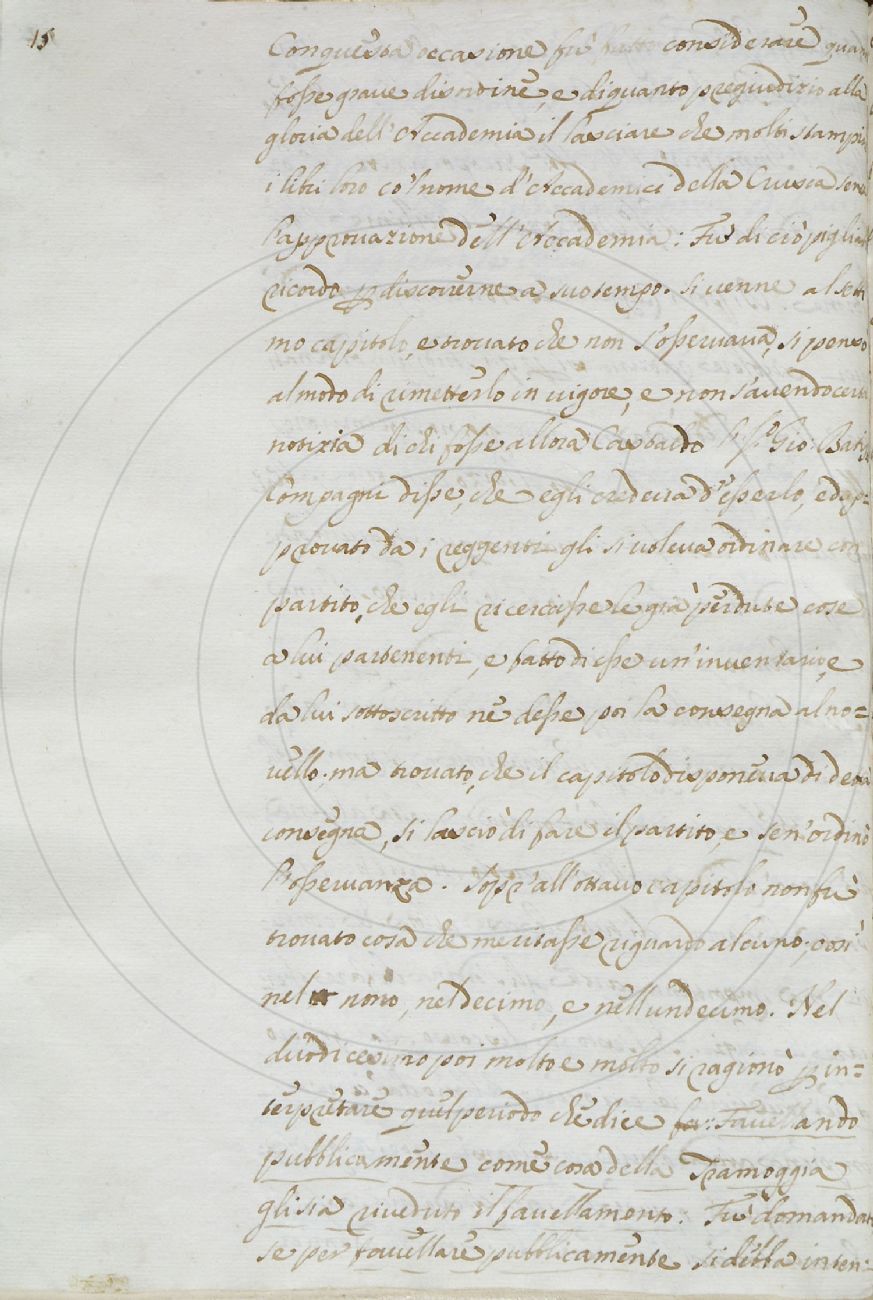 15
Con questa occasione fu fatto considerare quan
fosse graue disordine, e di quanto pregiudizio alla
gloria dell'Accademia il lasciare che molti stampin
i libri loro co'l nome d'Accademici della Crusca senza
l'approuazione dell'Accademia: Fù di ciò pigliat
ricordo p discorrerne a suo tempo. Si uenne al setti
mo capitolo, e trouato che non s'osseruaua, si pensò
al modo di rimetterlo in uigore, e non s'auendo certa
notizia di chi fosse allora Castaldo l' Sr. Gio: Batis
Compagni disse, che egli credeua d'esserlo, ed ap=
prouato da i reggenti gli si uoleua ordinare con
partito, che egli ricercasse le già perdute cose
a lui partenenti, e fatto di esse un'inuentario, e
da lui sottoscritto ne desse poi la consegna al no=
uello; ma trouato, che il capitolo disponeua di detta
consegna, si lasciò di fare il partito, e sen'ordinò
l'osseruanza. Sopr'all'ottauo capitolo non fù
trouato cosa che meritasse riguardo alcuno; così
nel nono, nel decimo, e nell'undecimo. Nel
duodicesimo poi molto e molto si ragionò p in=
terpretare quel periodo che dice fu: Fauellando
pubblicamente come cosa della Tramoggia
gli sia riueduto il fauellamento: Fu domandat
se per fauellare pubblicamente si debba inten=